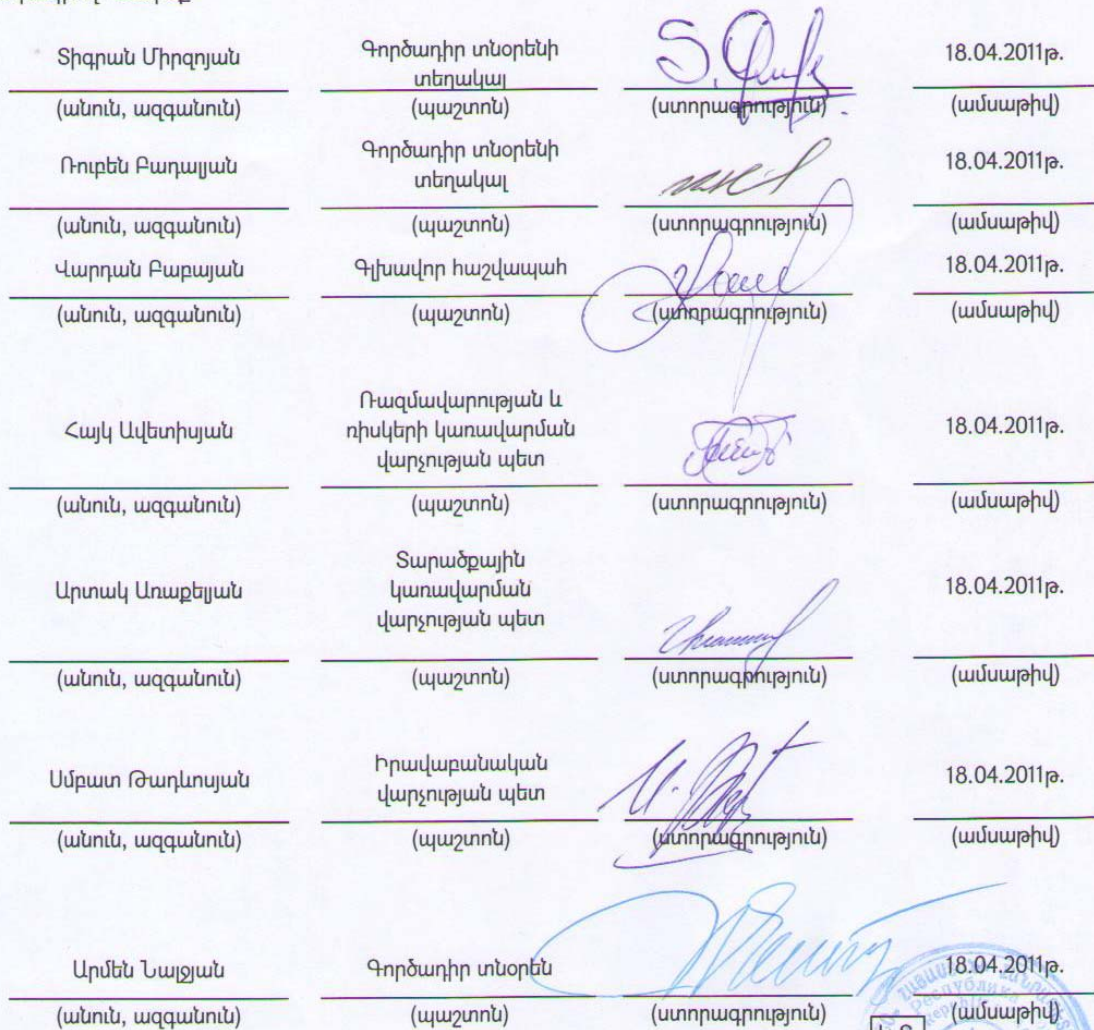 Տիգրան Միրզոյան Գործադիր տնօրենի տեղակալ 18.04.2011թ.
(անուն, ազգանուն) (պաշտոն) (ստորագրություն) (ամսաթիվ)
Ռուբեն Բադալյան Գործադիր տնօրենի տեղակալ 18.04.2011թ.
(անուն, ազգանուն) (պաշտոն) (ստորագրություն) (ամսաթիվ)
Վարդան Բաբայան Գլխավոր հաշվապահ 18.04.2011թ.
(անուն, ազգանուն) (պաշտոն) (ստորագրություն) (ամսաթիվ)
Հայկ Ավետիսյան Ռազմավարության և ռիսկերի կառավարման վարչության պետ 18.04.2011թ.
(անուն, ազգանուն) (պաշտոն) (ստորագրություն) (ամսաթիվ)
Արտակ Առաքելյան Տարածքային կառավարման վարչության պետ 18.04.2011թ.
(անուն, ազգանուն) (պաշտոն) (ստորագրություն) (ամսաթիվ)
Սմբատ Թադևոսյան Իրավաբանական վարչության պետ 18.04.2011թ.
(անուն, ազգանուն) (պաշտոն) (ստորագրություն) (ամսաթիվ)
Արմեն Նալջյան Գործադիր տնօրեն 18.04.2011թ.
(անուն, ազգանուն) (պաշտոն) (ստորագրություն) (ամսաթիվ)